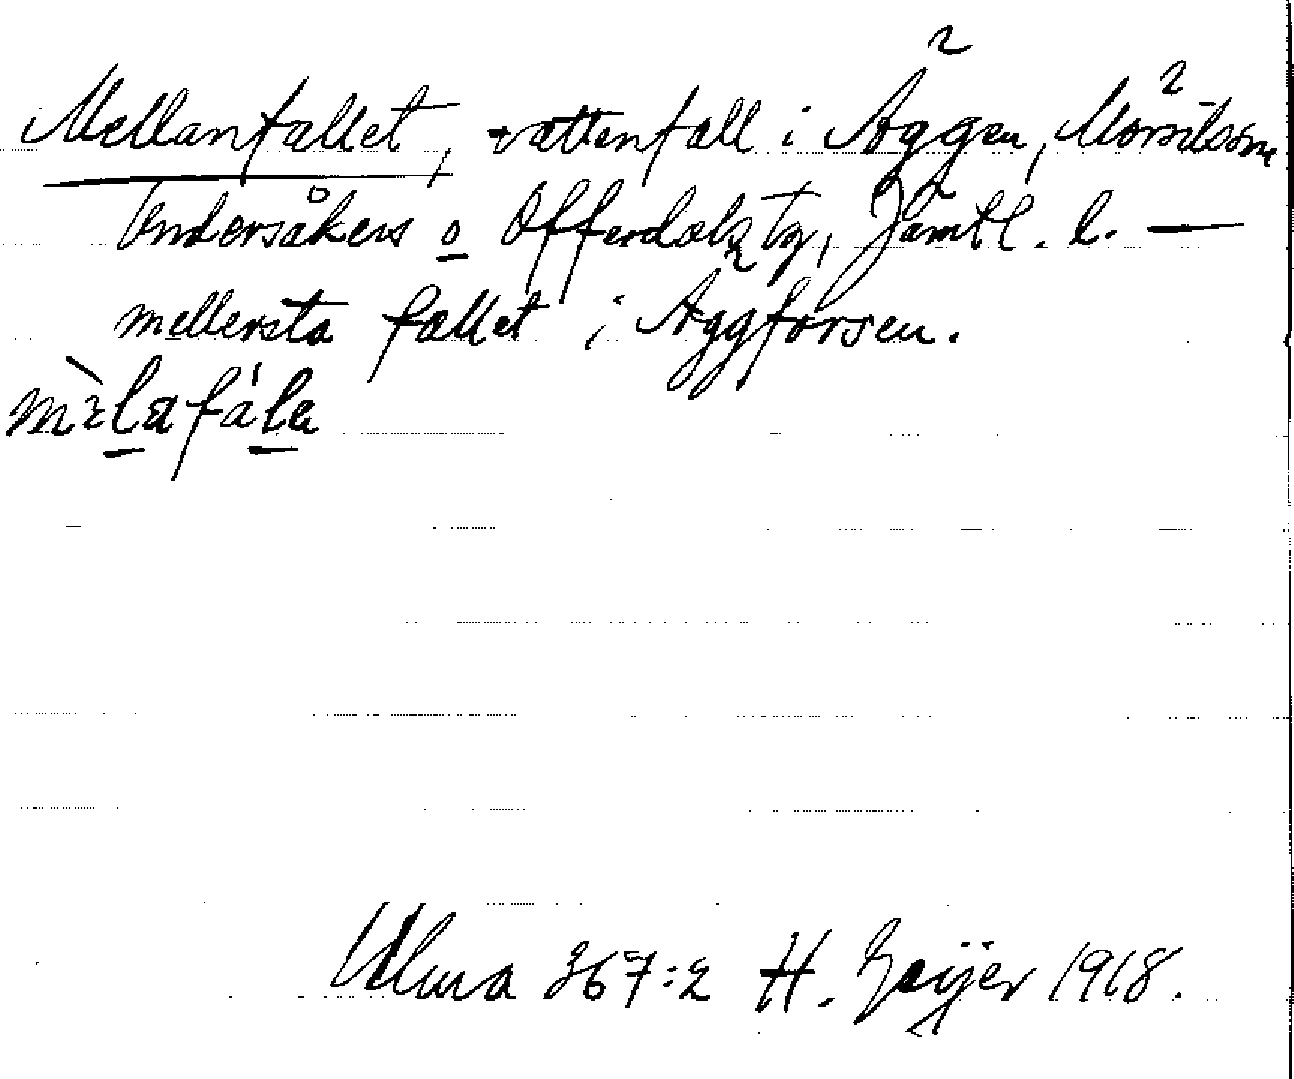 Mellanfallet, vattenfall i Äggen, Mörsils sn
Undersåkers o Offerdals tg, Jämtl. l. —
mellersta fallet i Äggforsen.
Ulma 367:2 H. Geijer 1918.